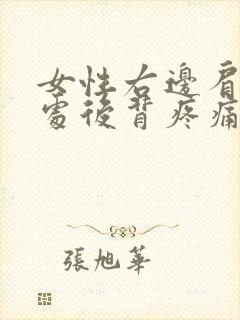 女性右邊肩
處後背疼痛
張旭華